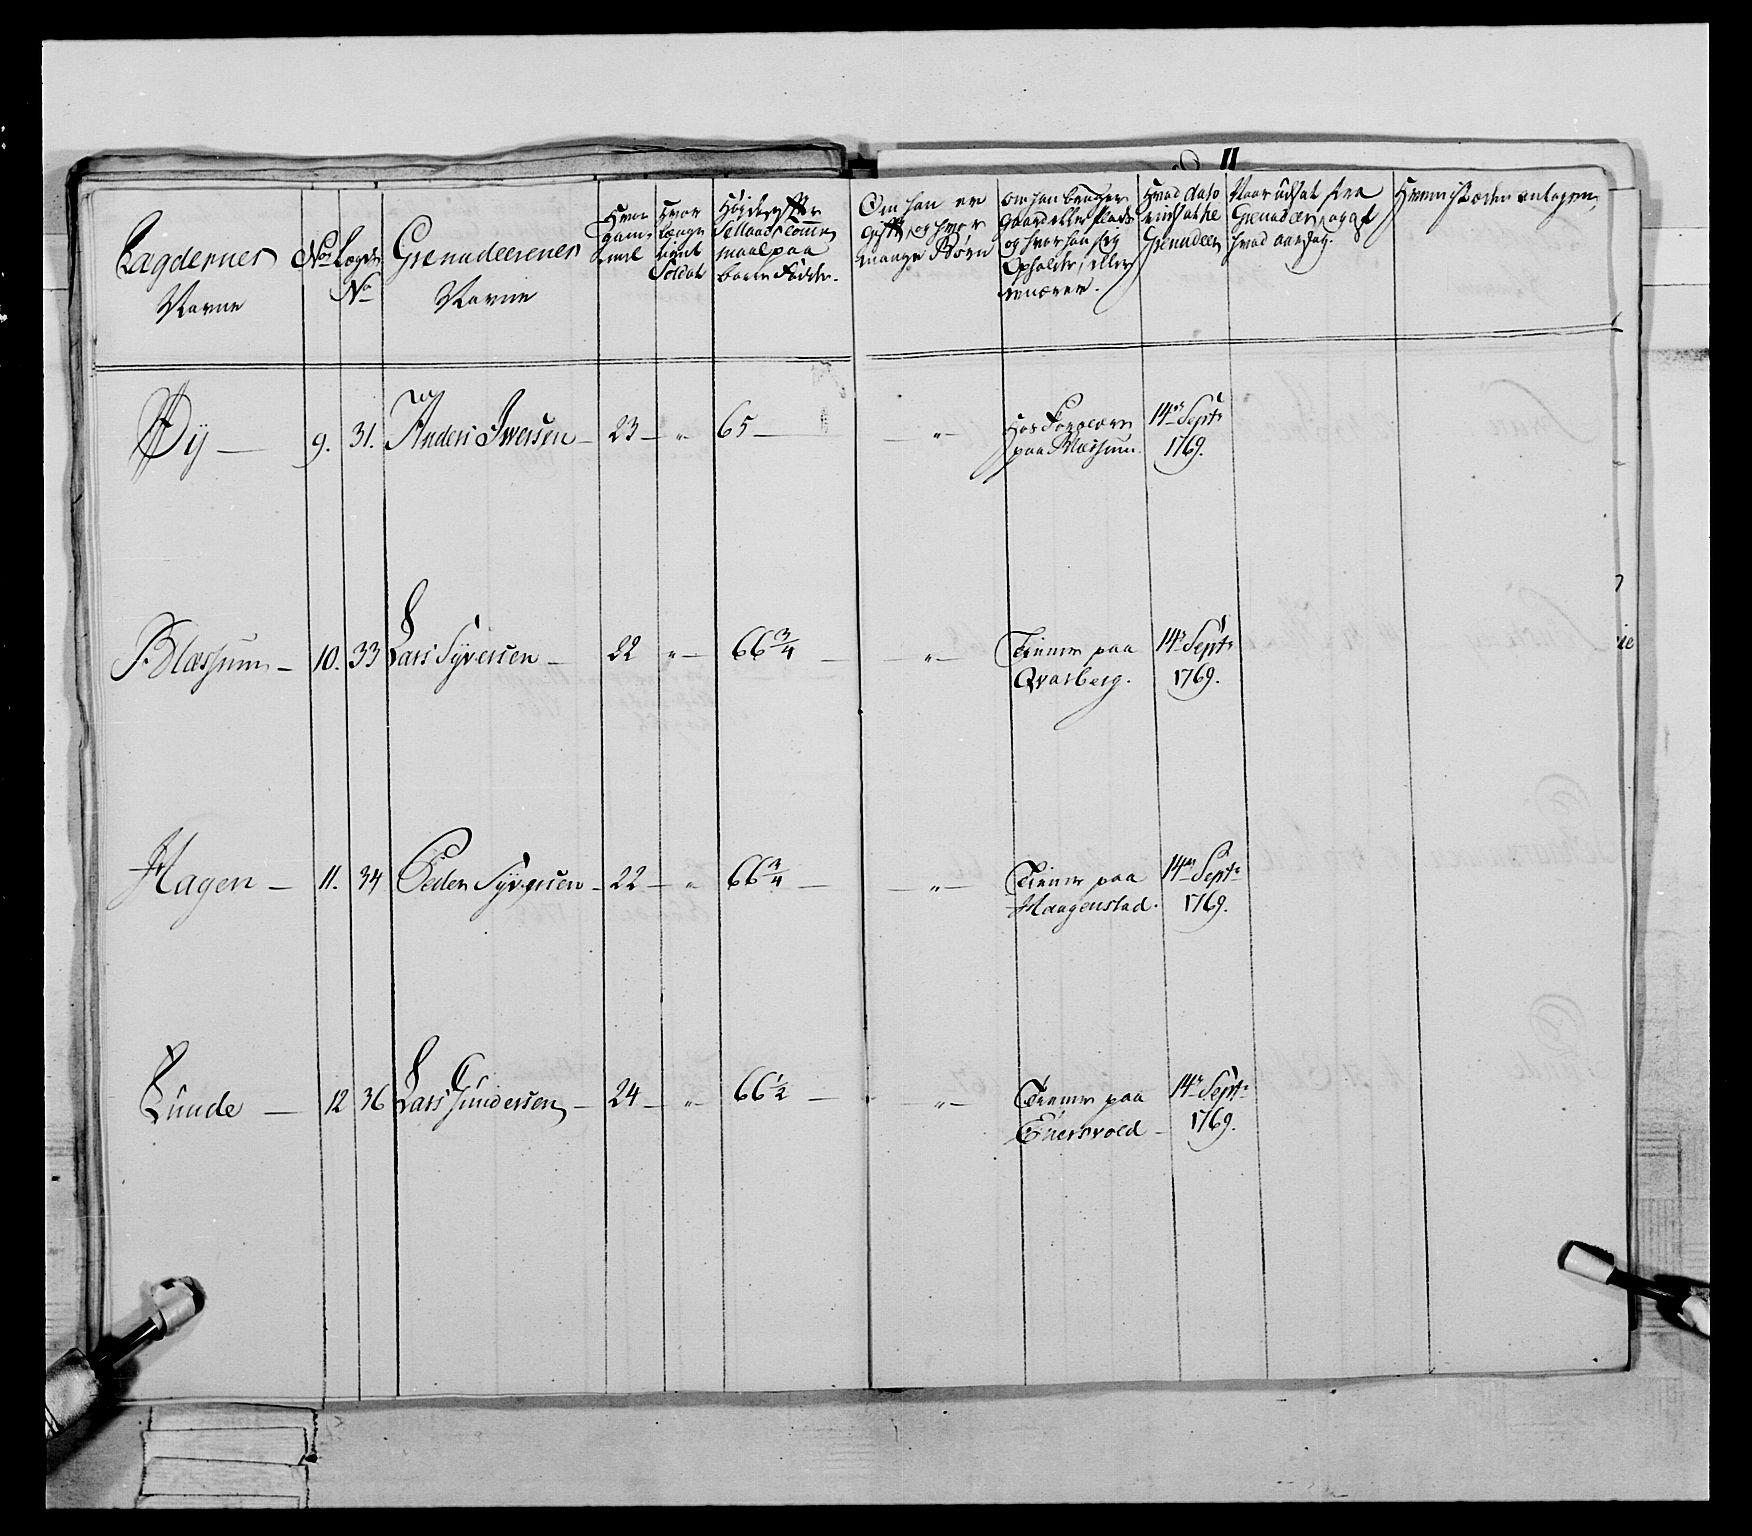 11
Lægdernes
Navne
No
Lægds
No
Grenadeerenes
Navne
Hvor
gam-
mel
Hvor
længe
tient
Soldat
Høide efter
Sellands Comm
maal paa
bare Fødder.
Om han er
gift, og hvor
mange Børn
om han bruger
Gaard eller Plads
og hvor han sig
Opholder, eller
ernærer.
Hvad dato
indsat til
Grenadeer
Naar udsat fra
Grenadeer, og at
hvad aarsag.
Hvem i Stæden antagen,
By — 9. 31. Anders Iversen — 23 — „ 65 — — „ — Hos Forældre 14de Septr
paa Blæssum. 1769.
Blæssum — 10. 33 Lars Syversen — 22 „ — 66 3/4 — — „ — Tiener paa 14de Septr
Qvarberg. 1769.
Hagen — 11. 34 Peder Syversen — 22 — „ 66 3/4 — — „ — Tiener paa 14de Septr
Haagenstad. 1769.
Lunde — 12 36 Lars Gundersen — 24 — „ 66 1/2 — — „ — Tiener paa 14de Septr
Enersvold — 1769.